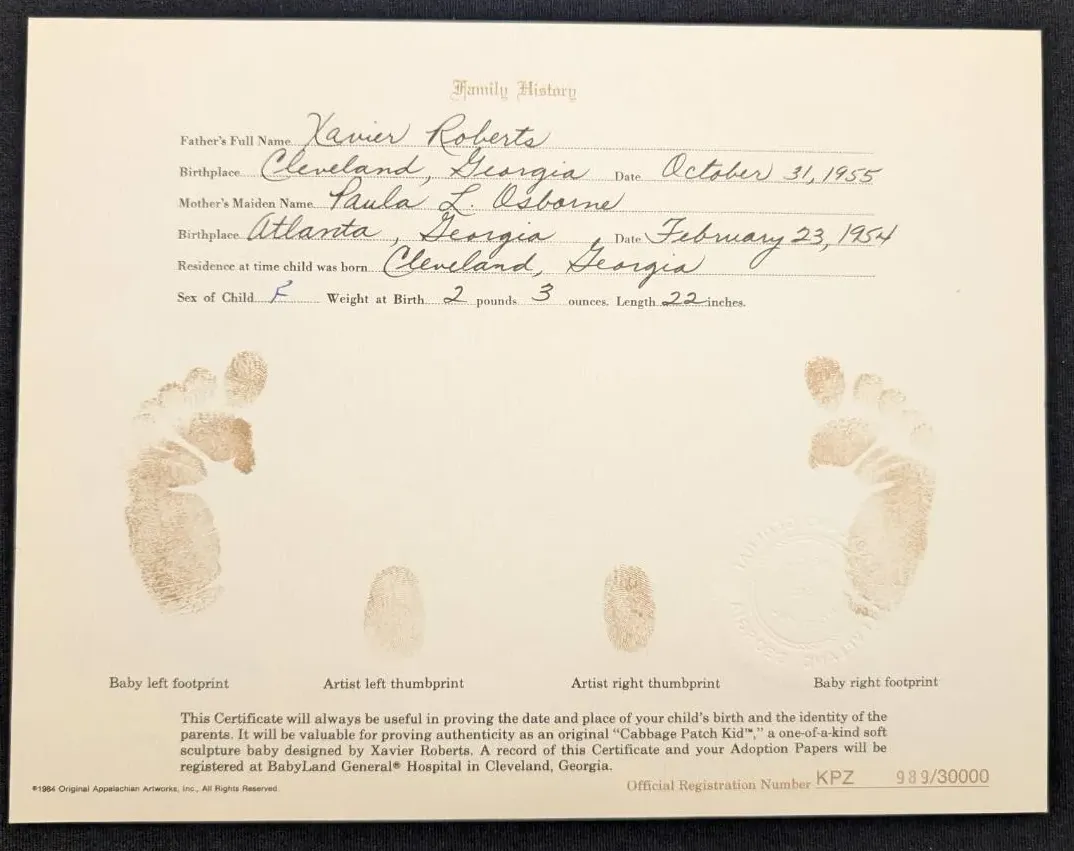 Family History
Father's Full Name Xavier Roberts
Birthplace Cleveland, Georgia Date October 31, 1955
Mother's Maiden Name Paula L. Osborne
Birthplace Atlanta, Georgia, Date February 23, 1954
Residence at time child was born Cleveland, Georgia
Sex of Child F Weight at Birth 2 pounds 3 ounces. Length 22 inches.
Baby left footprint Artist left thumbprint Artist right thumbprint Baby right footprint
This Certificate will always be useful in proving the date and place of your child's birth and the identity of the
parents. It will be valuable for proving authenticity as an original "Cabbage Patch Kid™," a one-of-a-kind soft
sculpture baby designed by Xavier Roberts. A record of this Certificate and your Adoption Papers will be
registered at BabyLand General® Hospital in Cleveland, Georgia.
©1984 Original Appalachian Artworks, Inc., All Rights Reserved.
Official Registration Number KPZ 989/30000